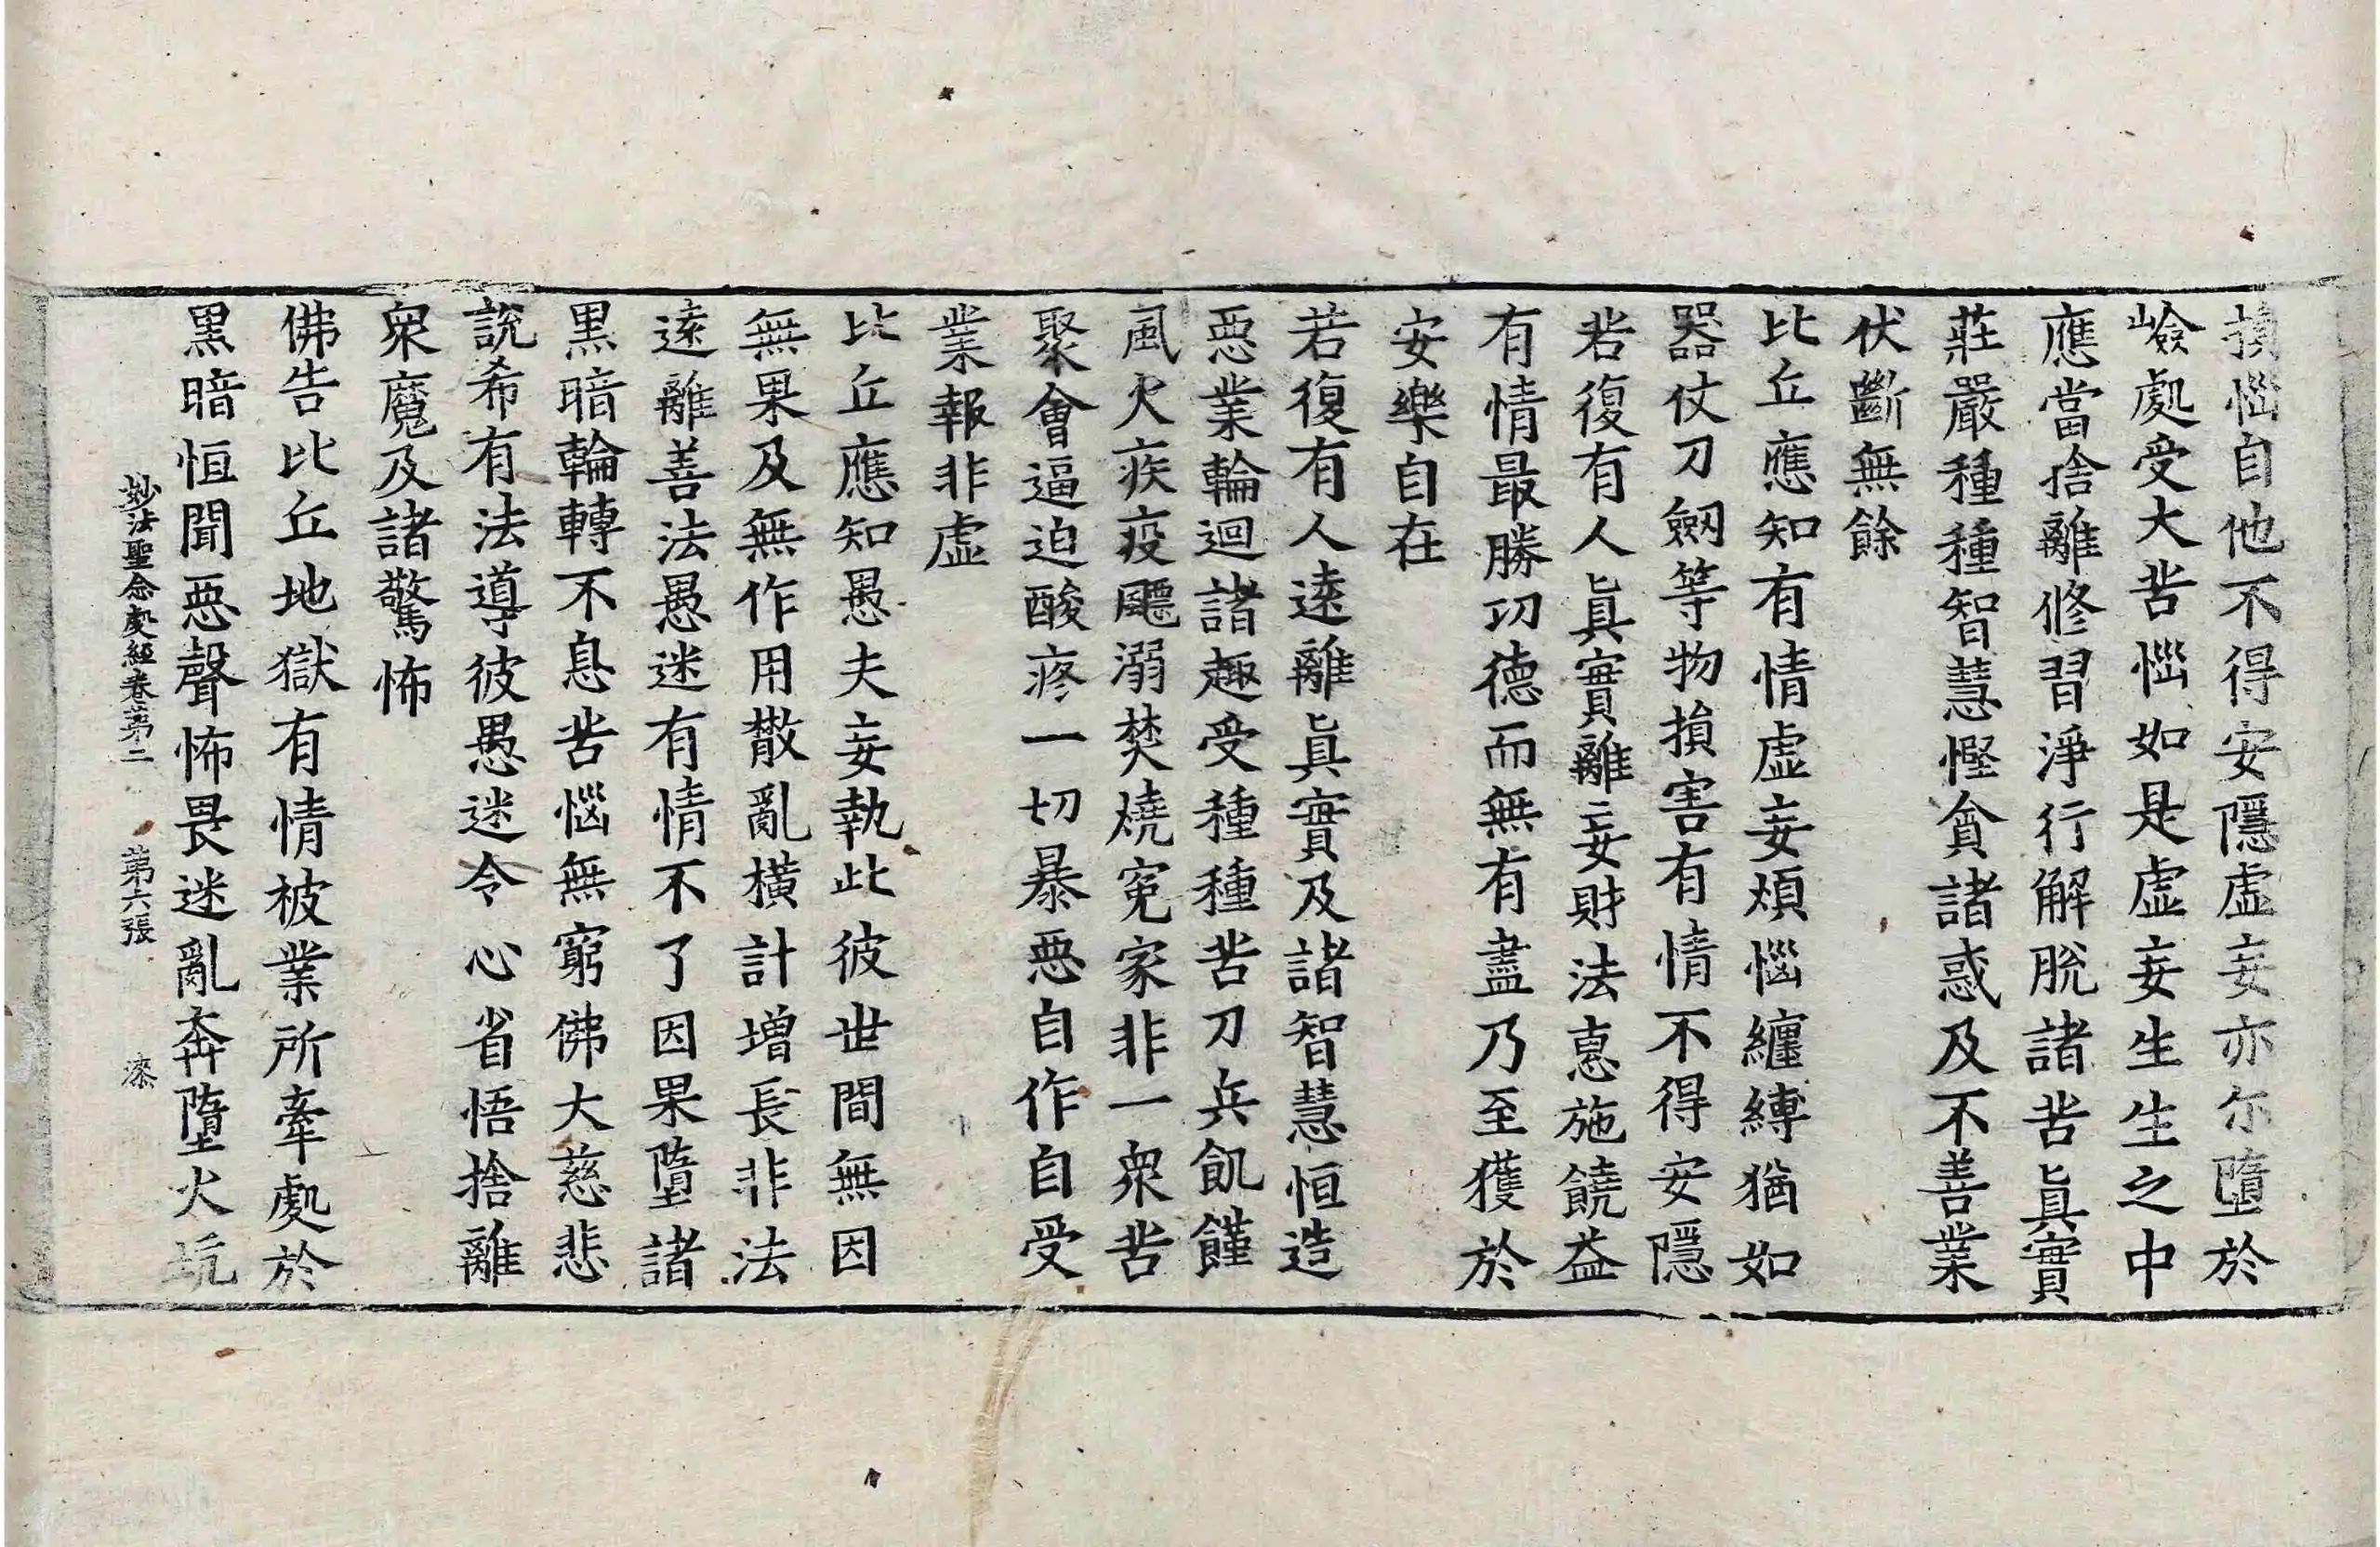 損惱自他不得安隱虛妄亦尔墮於
嶮處受大苦惱如是虛妄生生之中
應當捨離修習淨行解脫諸苦眞實
莊嚴種種智慧慳貪諸惑及不善業
伏斷無餘
比丘應知有情虛妄煩惱纏縛猶如
器仗刀劒等物損害有情不得安隱
若復有人眞實離妄財法惠施饒益
有情最勝功德而無有盡乃至獲於
安樂自在
若復有人遠離眞實及諸智慧恒造
惡業輪迴諸趣受種種苦刀兵飢饉
風火疾疫飃溺焚燒寃家非一衆苦
聚會逼迫酸疼一切暴惡自作自受
業報非虛
比丘應知愚夫妄執此彼世間無因
無果及無作用散亂橫計增長非法
遠離善法愚迷有情不了因果墮諸
黑暗輪轉不息苦惱無窮佛大慈悲
說希有法導彼愚迷令心省悟捨離
衆魔及諸驚怖
佛告比丘地獄有情被業所牽處於
黑暗恒聞惡聲怖畏迷亂奔墮火坑
妙法聖念處經卷第二 第六張 漆